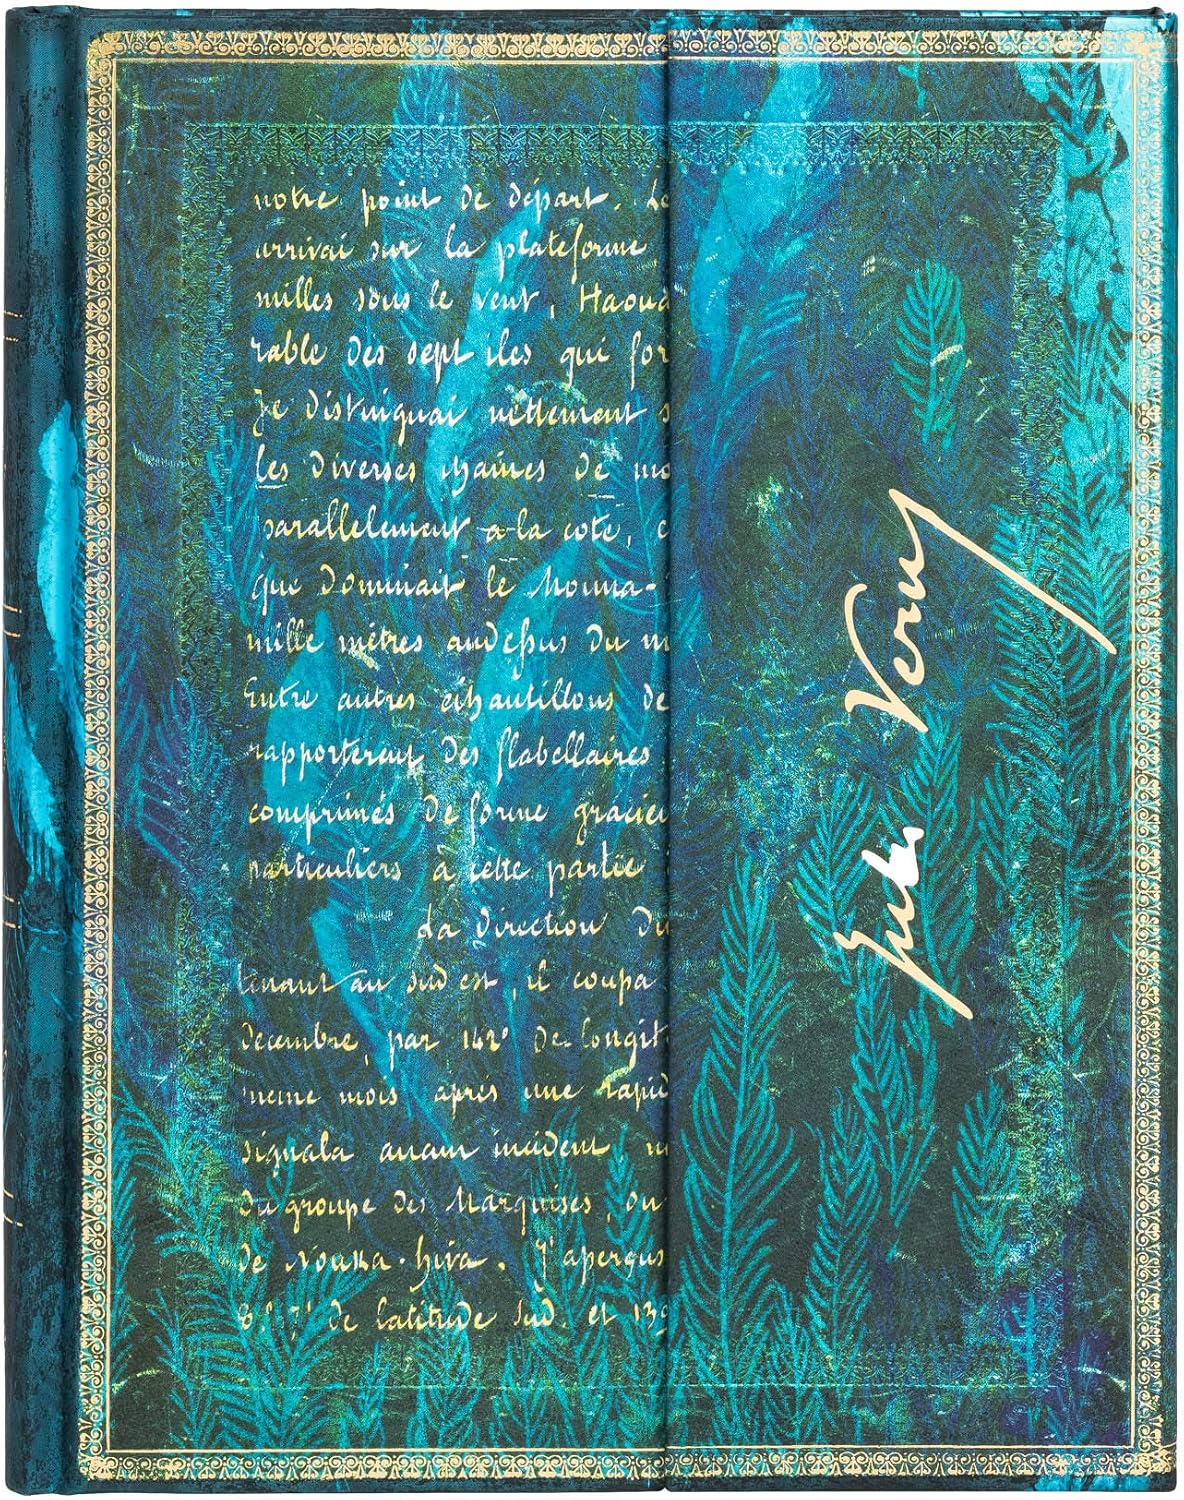 notre point de départ. Le
arrivai sur la plateforme
milles sous le vent, Haoua
rable des sept iles qui for
Je distinguai nettement s
les diverses chaines de mo
parallelement a la cote, c
que dominait le Mouna-
mille mètres audessus du m
Entre autres échantillons de
rapporterent des flabellaires
comprimés de forme gracieu
particuliers à cette partie
La direction du
tenant au sud est, il coupa
décembre, par 142° de longit
meme mois après une rapid
signala aucun incident, n
du groupe des Marquises, ou
de Nouka-hiva. J'aperçus
8°,57' de latitude sud. et 139
Jules Verne